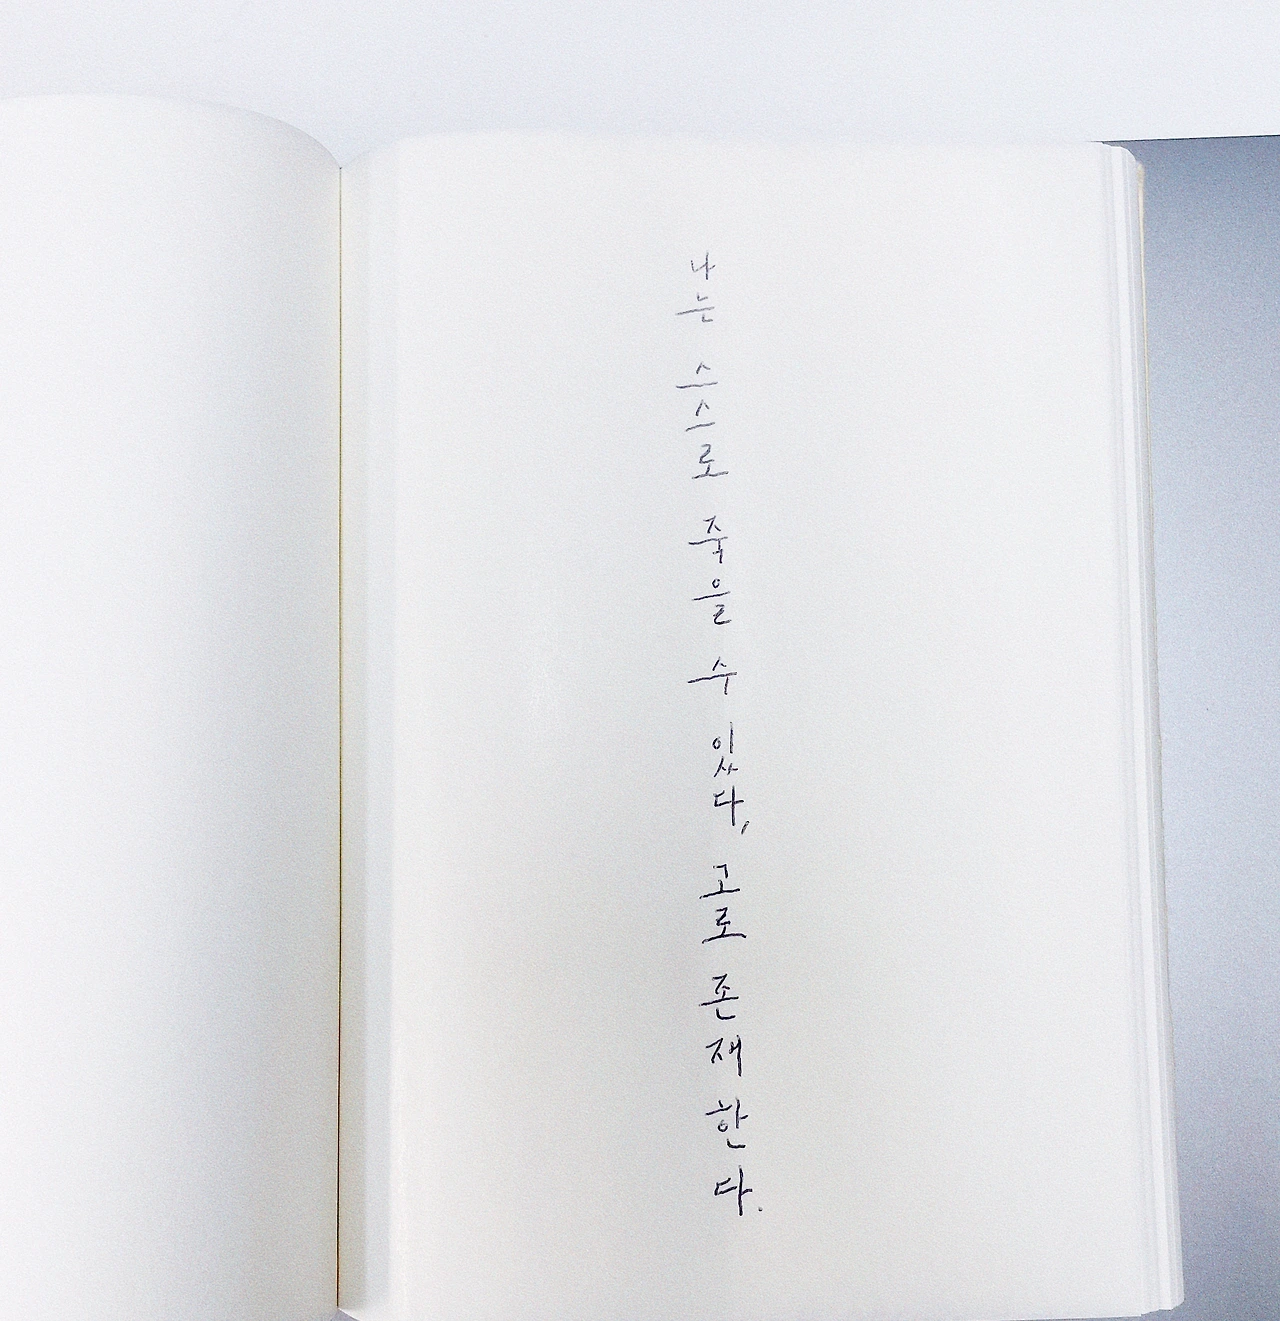 나는 스스로 죽을 수 있다, 고로 존재 한다.